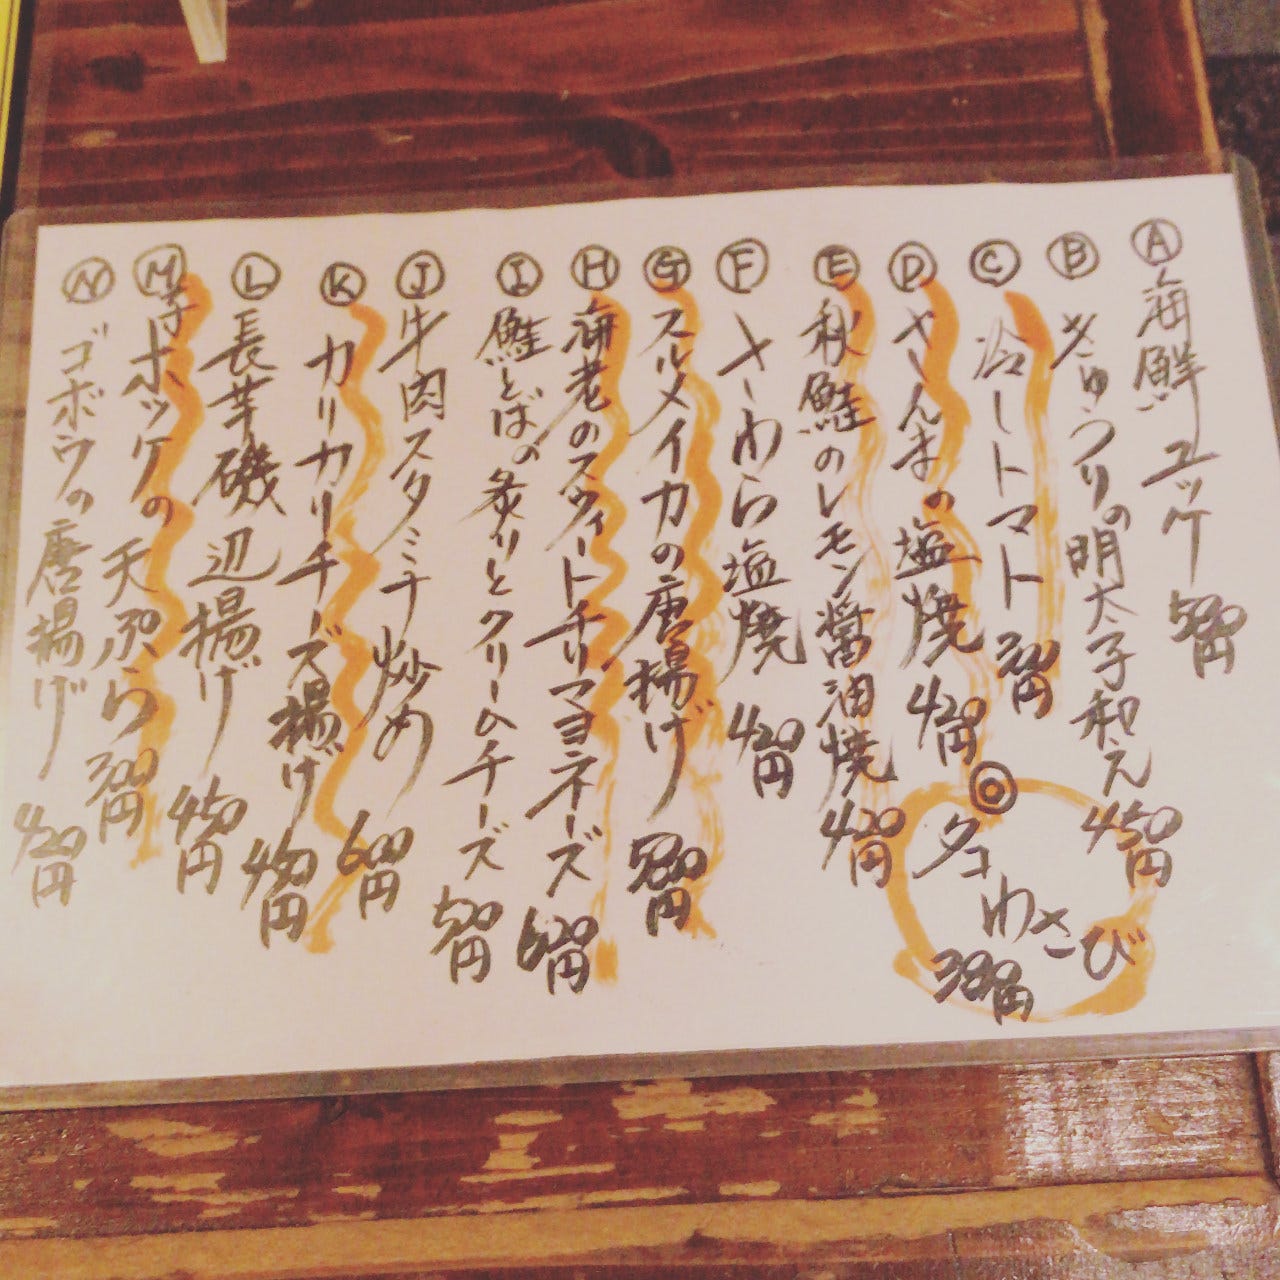 Ⓐ海鮮ユッケ 580円
Ⓑきゅうりの明太子和え 450円
Ⓒ冷しトマト 円
Ⓓさんまの塩焼 420円
Ⓔ秋鮭のレモン醤油焼 420円
Ⓕさわら塩焼 420円
Ⓖスルメイカの唐揚げ 580円
Ⓗ海老のスウィートチリマヨネーズ 620円
Ⓘ鮭とばの炙りとクリームチーズ 500円
Ⓙ牛肉スタミナ炒め 600円
Ⓚカリカリチーズ揚げ 480円
Ⓛ長芋磯辺揚げ 450円
Ⓜホッケの天ぷら 300円
Ⓝゴボウの唐揚げ 420円
Ⓞタコわさび 380円